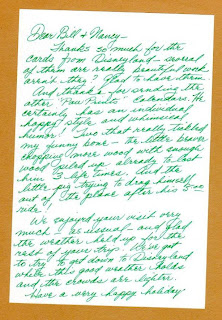 Dear Bill & Nancy —
Thanks so much for the
cards from Disneyland — several
of them are really beautiful work
aren't they? Glad to have them.
And thanks for sending the
other "Paw Prints" Calendars. He
certainly has an individual
happy style and whimsical
humor! Two that really tickled
my funny bone — the little beaver
chopping more wood with enough
wood piled up already to last
him 3 life times. And the
little pig trying to drag himself
out of the plane after his
ride!
We enjoyed your visit very
much — as usual — and glad
the weather held up for the
rest of your trip. We've got
to try to get down to Disneyland
while this good weather holds
and the crowds are lighter.
Have a very happy holiday